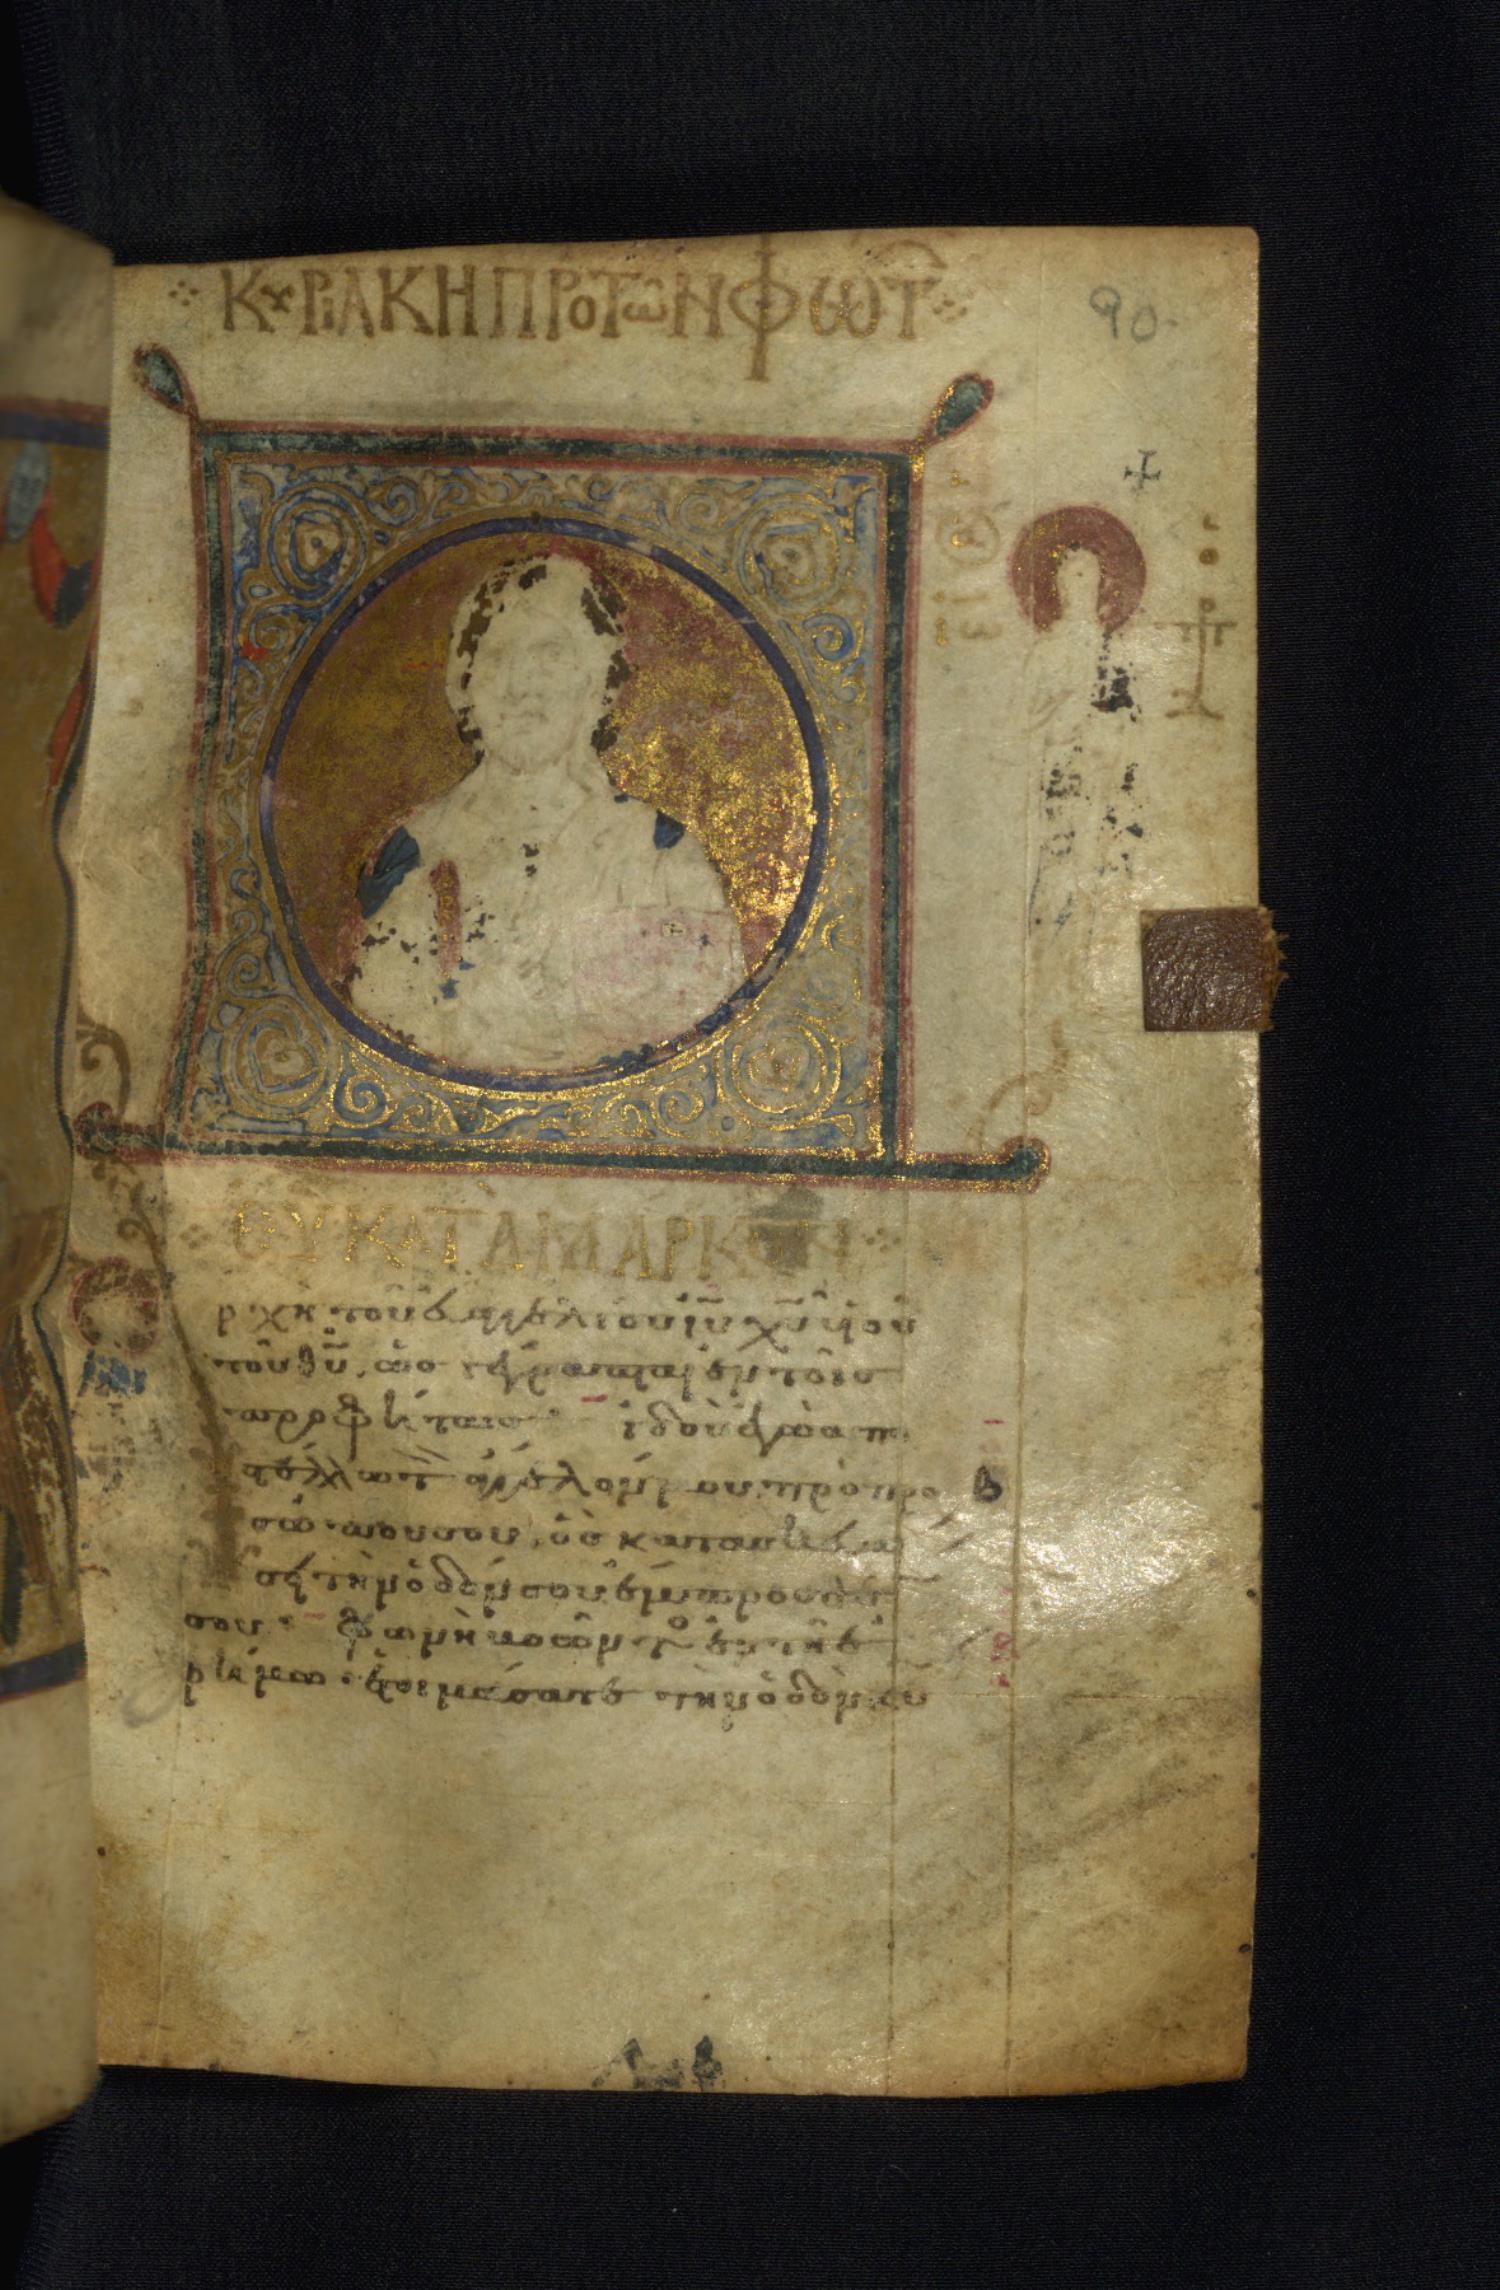 ΚΥΡΙΑΚΗ ΠΡΟ ΤῶΝ ΦΩΤ
90
ΕΥ ΚΑΤᾺ ΜΑΡΚΟΝ
ρχὴ τοῦ ἐυαγγελίου ἰῦ χῦ ὑιοῦ
τοῦ θῦ, ὡσ γέγραπται ἐν τοῖσ
προφήταισ ἰδοὺ ἐγὼ ἀπο
στέλλω τὸν ἄγγελόν μου πρὸ προ
σώπου σου, ὃσ κατασκευά
σει τὴν ὁδόν σου ἔμπροσθέν
σου. φωνὴ βοῶντοσ ἐν τῇ ἐ
ρήμω. ἑτοιμάσατε τὴν ὁδὸν κυ